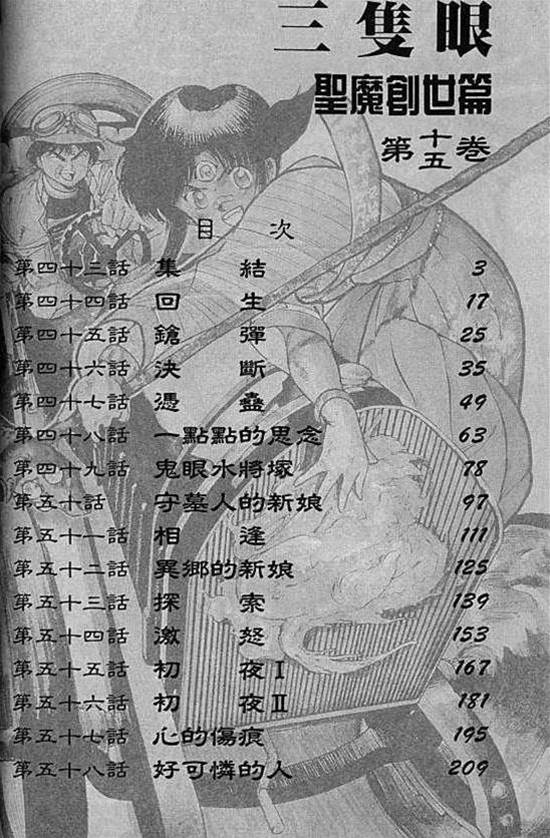 三隻眼
聖魔創世篇
第十五巻
目次
第四十三話 集結 3
第四十四話 回生 17
第四十五話 鎗彈 25
第四十六話 決斷 35
第四十七話 憑蠱 49
第四十八話 一點點的思念 63
第四十九話 鬼眼水將塚 78
第五十話 守墓人的新娘 97
第五十一話 相逢 111
第五十二話 異鄉的新娘 125
第五十三話 探索 139
第五十四話 激怒 153
第五十五話 初夜Ⅰ 167
第五十六話 初夜Ⅱ 181
第五十七話 心的傷痕 195
第五十八話 好可憐的人 209